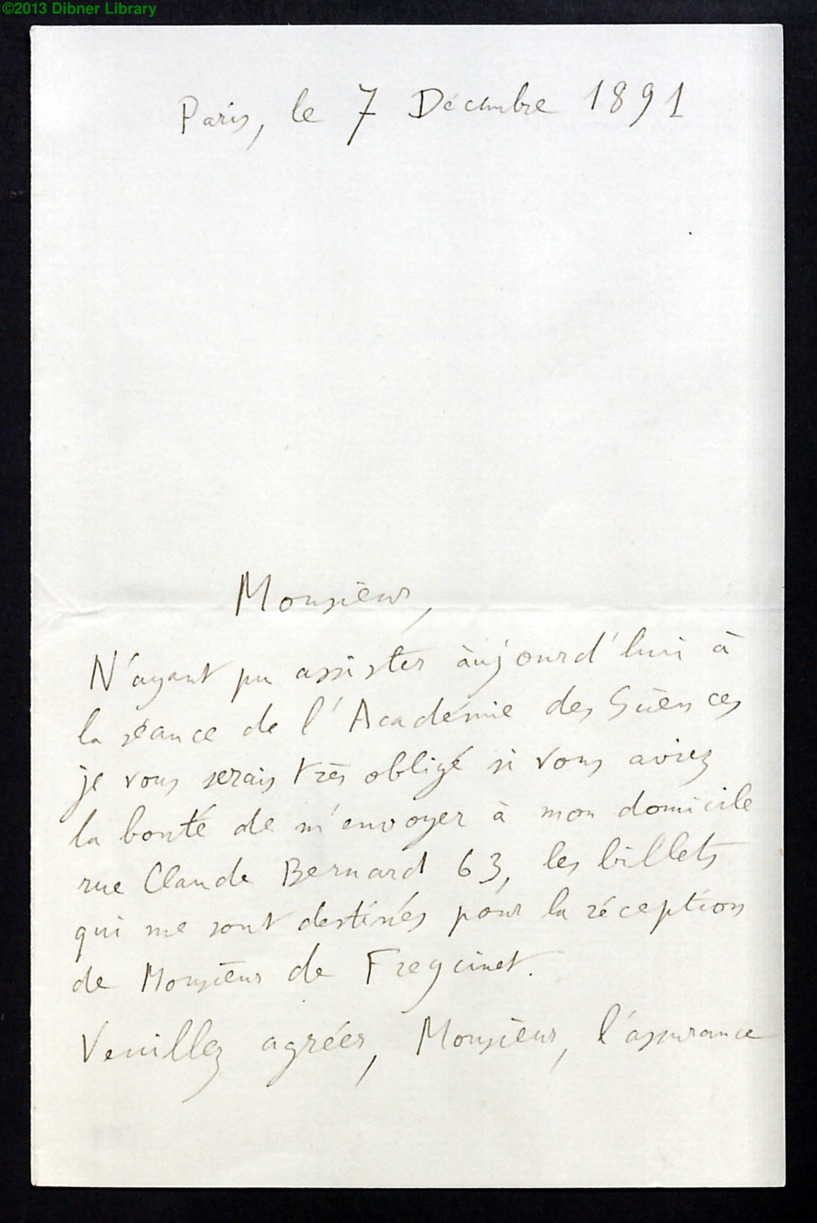 ©2013 Dibner Library
Paris, le 7 Décembre 1891
Monsieur,
N'ayant pu assister aujourd'hui à
la séance de l'Académie des Sciences
je vous serais très obligé si vous aviez
la bonté de m'envoyer à mon domicile
rue Claude Bernard 63, les billets
qui me sont destinés pour la réception
de Monsieur de Freycinet.
Veuillez agréer, Monsieur, l'assurance